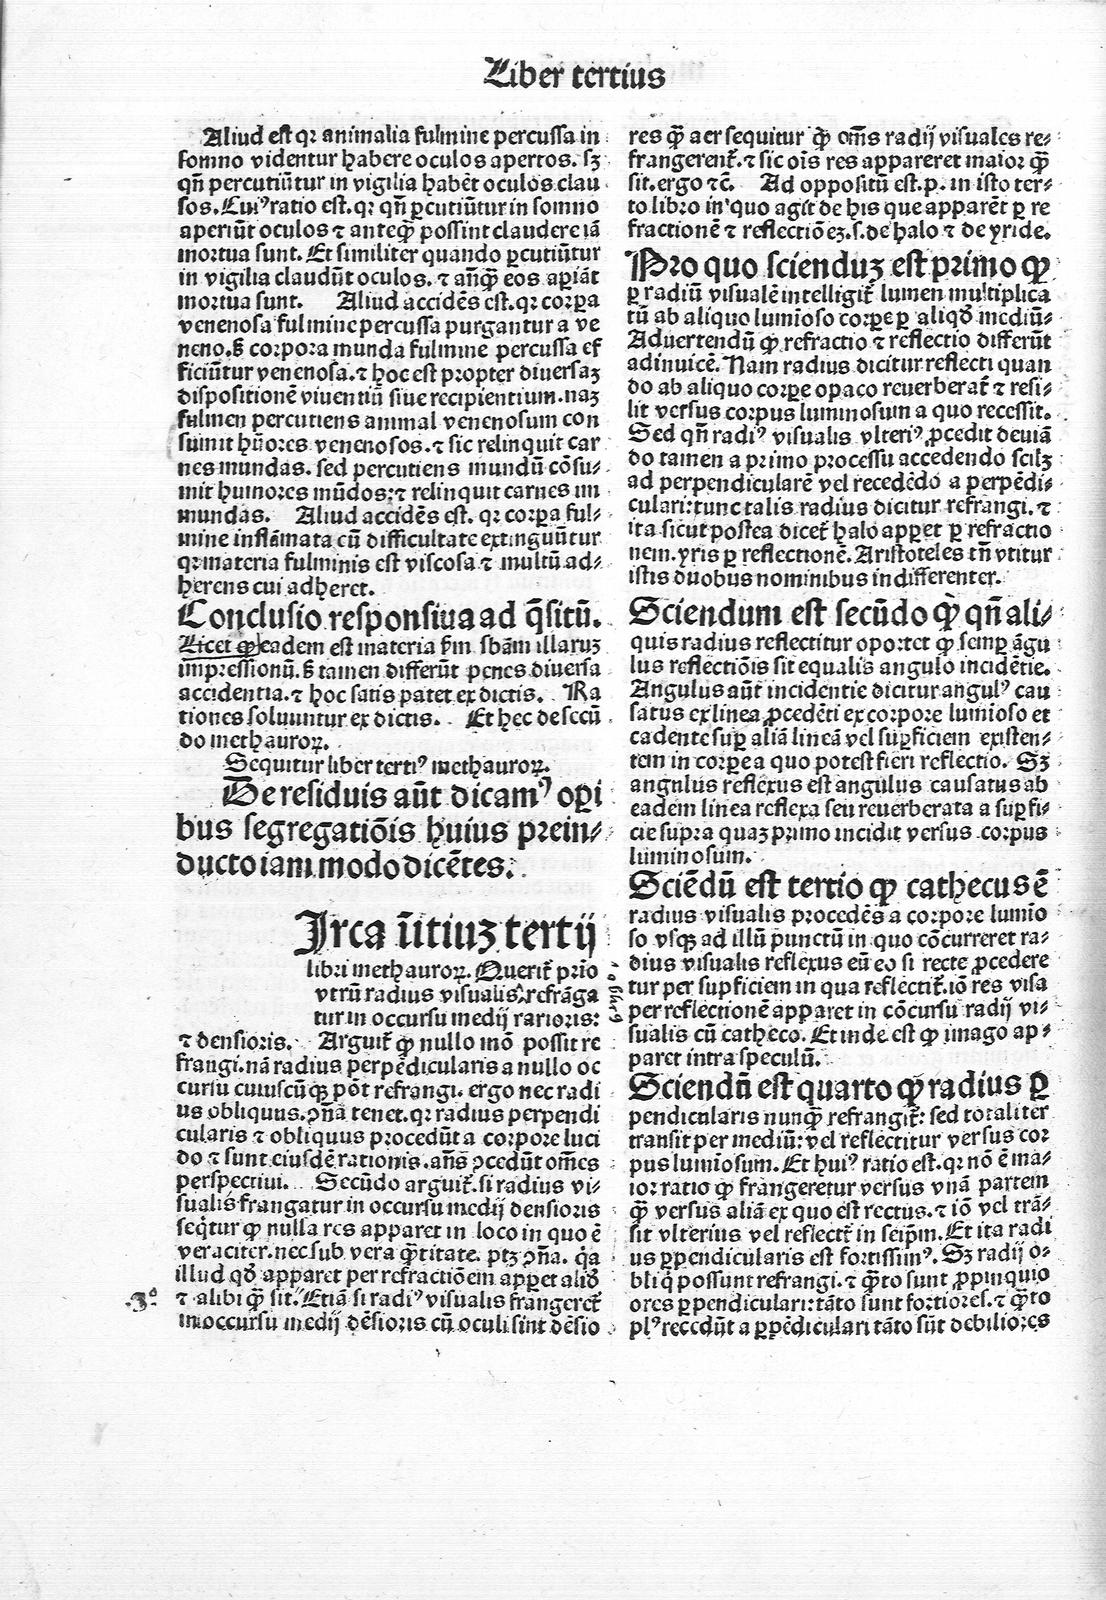 Liber tertius
Aliud est qꝛ animalia fulmine percussa in
somno videntur habere oculos apertos. sꝫ
qn̄ percutiūtur in vigilia habēt oculos clau
sos. Cuiꝰ ratio est. qꝛ qn̄ ꝑcutiūtur in somno
aperiūt oculos ⁊ anteq̄ꝫ possint claudere iā
mortua sunt. Et similiter quando ꝑcutiūtur
in vigilia claudūt oculos. ⁊ an̄q̄ꝫ eos aꝑiāt
mortua sunt. Aliud accidēs est. qꝛ corꝑa
venenosa fulmine percussa purgantur a ve
neno. ß corpora munda fulmine percussa ef
ficiūtur venenosa. ⁊ hoc est propter diuersaꝫ
dispositionē viuentiū siue recipientium. naꝫ
fulmen percutiens animal venenosum con
sumit hūores venenosos. ⁊ sic relinquit car
nes mundas. sed percutiens mundū cōsu⸗
mit humores mūdos: ⁊ relinquit carnes im
mundas. Aliud accidēs est. qꝛ corꝑa ful⸗
mine inflāmata cū difficultate extinguūtur
qꝛ materia fulminis est viscosa ⁊ multū ad⸗
herens cui adheret.
Conclusio responsiua ad q̄sitū.
Licet ꝙ eadem est materia ẜm sbām illaruꝫ
impressionū. ß tamen differūt penes diuersa
accidentia. ⁊ hoc satis patet ex dictis. Ra
tiones soluuntur ex dictis. Et hec de secū
do methauroꝝ.
Sequitur liber tertiꝰ methauroꝝ.
De residuis aūt dicamꝰ oꝑi
bus segregatiōis huius prein⸗
ducto iam modo dicētes.
Irca īitiuꝫ tertij
libri methauroꝝ. Querit̄ prīo
vtrū radius visualis refrāga
tur in occursu medij rarioris:
⁊ densioris. Arguit̄ ꝙ nullo mō possit re
frangi. nā radius perpēdicularis a nullo oc
cursu cuiuscūqꝫ pōt refrangi. ergo nec radi
us obliquus. ꝯn̄a tenet. qꝛ radius perpendi
cularis ⁊ obliquus procedūt a corpore luci
do ⁊ sunt eiusdē rationis. an̄s ꝯcedūt om̄es
perspectiui. Secūdo arguit̄. si radius vi⸗
sualis frangatur in occursu medij densioris
seq̄tur ꝙ nulla res apparet in loco in quo ē
veraciter. nec sub vera q̄titate. ptꝫ ꝯn̄a. q̄a
illud qd̄ apparet per refractiōem apꝑet aliō
⁊ alibi q̄ꝫ sit. Etiā si radiꝰ visualis frangeret̄
in occursu medij dēsioris cū oculi sint dēsio
.3°
res q̄ꝫ aer sequitur ꝙ om̄s radij visuales re⸗
frangerent̄. ⁊ sic oīs res appareret maior q̄ꝫ
sit. ergo ⁊c̄. Ad oppositū est. p. in isto ter⸗
to libro in quo agit de his que apparēt ꝑ re
fractionē ⁊ reflectiōeꝫ. s. de halo ⁊ de yride.
Pro quo scienduꝫ est primo ꝙ
ꝑ radiū visualē intelligit̄ lumen multiplica
tū ab aliquo lumīoso corꝑe ꝑ aliqd̄ mediū⸗
Aduertendū ꝙ refractio ⁊ reflectio differūt
adinuicē. Nam radius dicitur reflecti quan
do ab aliquo corꝑe opaco reuerberat̄ ⁊ resi⸗
lit versus corpus luminosum a quo recessit.
Sed qn̄ radiꝰ visualis vlteriꝰ ꝓcedit deuiā
do tamen a primo processu accedendo scilꝫ
ad perpendicularē vel recedēdo a perpēdi⸗
culari: tunc talis radius dicitur refrangi. ⁊
ita sicut postea dicet̄ halo apꝑet ꝑ refractio
nem. yris ꝑ reflectionē. Aristoteles tn̄ vtitur
istis duobus nominibus indifferenter.
Sciendum est secūdo ꝙ qn̄ ali⸗
quis radius reflectitur oportet ꝙ semꝑ āgu
lus reflectiōis sit equalis angulo incidētie.
Angulus aūt incidentie dicitur angulꝰ cau
satus ex linea ꝓcedēti ex corpore lumīoso et
cadente suꝑ aliā lineā vel suꝑficiem existen⸗
tem in corꝑe a quo potest fieri reflectio. Sꝫ
angulus reflexus est angulus causatus ab
eadem linea reflexa seu reuerberata a suꝑfi⸗
cie supra quaꝫ primo incidit versus corpus
luminosum.
Sciēdū est tertio ꝙ cathecus ē
radius visualis procedēs a corpore lumīo
so vsqꝫ ad illū punctū in quo cōcurreret ra⸗
dius visualis reflexus eū eo si recte ꝓcedere
tur per suꝑficiem in qua reflectit̄. iō res visa
per reflectionē apparet in cōcursu radij vi⸗
sualis cū catheco. Et inde est ꝙ imago ap⸗
paret intra speculū.
Sciendū est quarto ꝙ radius ꝑ
pendicularis nunq̄ꝫ refrangit̄: sed totaliter
transit per mediū: vel reflectitur versus cor
pus lumīosum. Et huiꝰ ratio est. qꝛ nō ē ma⸗
ior ratio ꝙ frangeretur versus vnā partem
q̄ꝫ versus aliā ex quo est rectus. ⁊ iō vel trā⸗
sit vlterius vel reflectit̄ in seiꝑm. Et ita radi
us ꝑpendicularis est fortissimꝰ. Sꝫ radij o⸗
bliq̄ possunt refrangi. ⁊ q̄to sunt ꝓpinquio
ores ꝑpendiculari: tāto sunt fortiores. ⁊ q̄to
plꝰ recedūt a ꝑpēdiculari tāto sūt debiliores